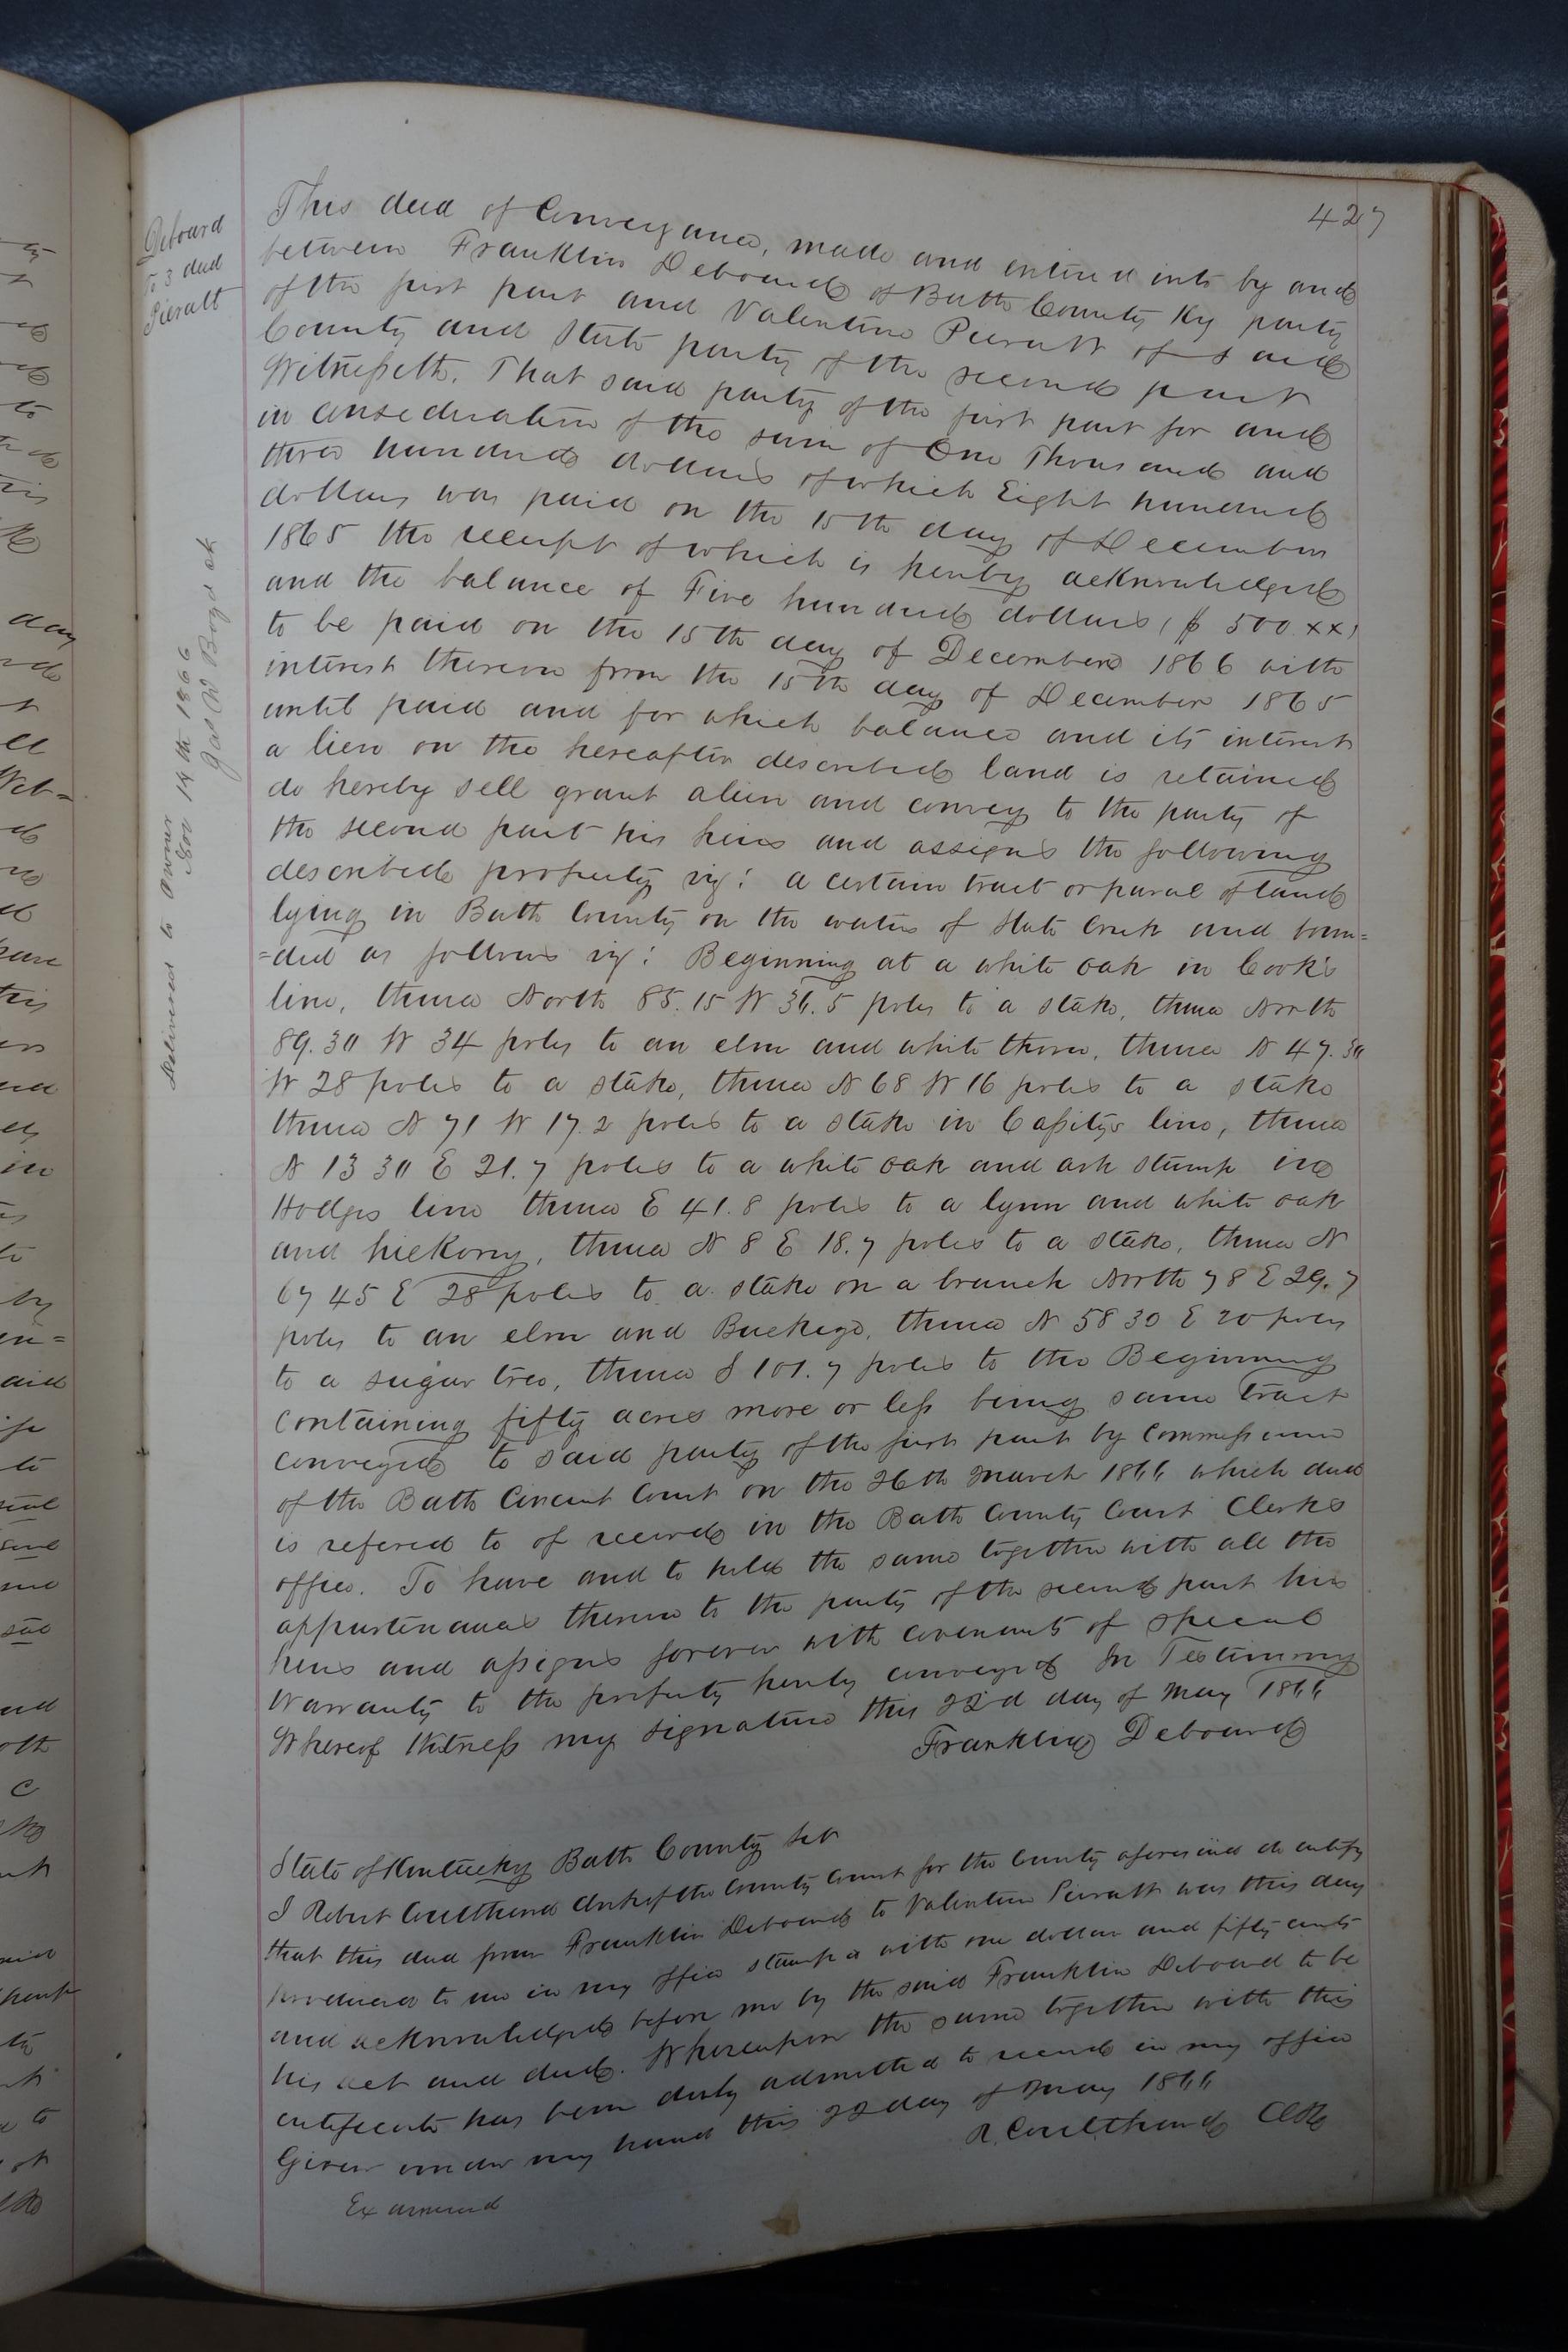 427
Deboard
To 3 deed
Pieratt
Delivered to Owner
Nov 14th 1866
Jas W Boyd
This deed of Conveyance, made and entered into by and
between Franklin Deboard of Bath County Ky party
of the first part and Valentine Pieratt of said
County and State party of the second part
Witnesseth. That said party of the first part for and
in consideration of the sum of One Thousand and
three hundred dollars of which Eight hundred
dollars was paid on the 15th day of December
1865 the receipt of which is hereby acknowledged
and the balance of Five hundred dollars, ($500.xx)
to be paid on the 15th day of December 1866 with
interest thereon from the 15th day of December 1865
until paid and for which balance and its interest
a lien on the hereafter described land is retained
do hereby sell grant alien and convey to the party of
the second part his heirs and assigns the following
described property viz: a certain tract or parcel of land
lying in Bath County on the waters of Slate Creek and boun=
=ded as follows viz: Beginning at a white oak in Cook's
line, thence North 85.15 W 36.5 poles to a stake, thence North
89.30 W 34 poles to an elm and white thorn, thence N 47.30
W 28 poles to a stake, thence N 68 W 16 poles to a stake
thence N 71 W 17.2 poles to a stake in Cassity's line, thence
N 13 30 E 21.7 poles to a white oak and ash stump in
Hodges line thence E 41.8 poles to a lynn and white oak
and hickory, thence N 8 E 18.7 poles to a stake, thence N
67 45 E 28 poles to a stake on a branch North 78 E 29.7
poles to an elm and Buckeye, thence N 58 30 E 20 poles
to a sugar tree, thence S 101.7 poles to the Beginning
containing fifty acres more or less being same tract
conveyed to said party of the first part by Commissioner
of the Bath Circuit Court on the 26th March 1866 which deed
is refered to of record in the Bath County Court Clerks
office. To have and to hold the same together with all the
appurtenances thereon to the party of the second part his
heirs and assigns forever with covenants of Special
Warranty to the property hereby conveyed In Testimony
Whereof Witness my signature this 22d day of May 1866
Franklin Deboard
State of Kentucky Bath County Sct
I Robert Coulthard Clerk of the County Court for the County aforesaid do certify
that this deed from Franklin Deboard to Valentine Pieratt was this day
produced to me in my office stamped with one dollar and fifty cents
and acknowledged before me by the said Franklin Deboard to be
his act and deed. Whereupon the same together with this
certificate has been duly admitted to record in my office
Given under my hand this 22 day of May 1866
R. Coulthard Clk
Examined